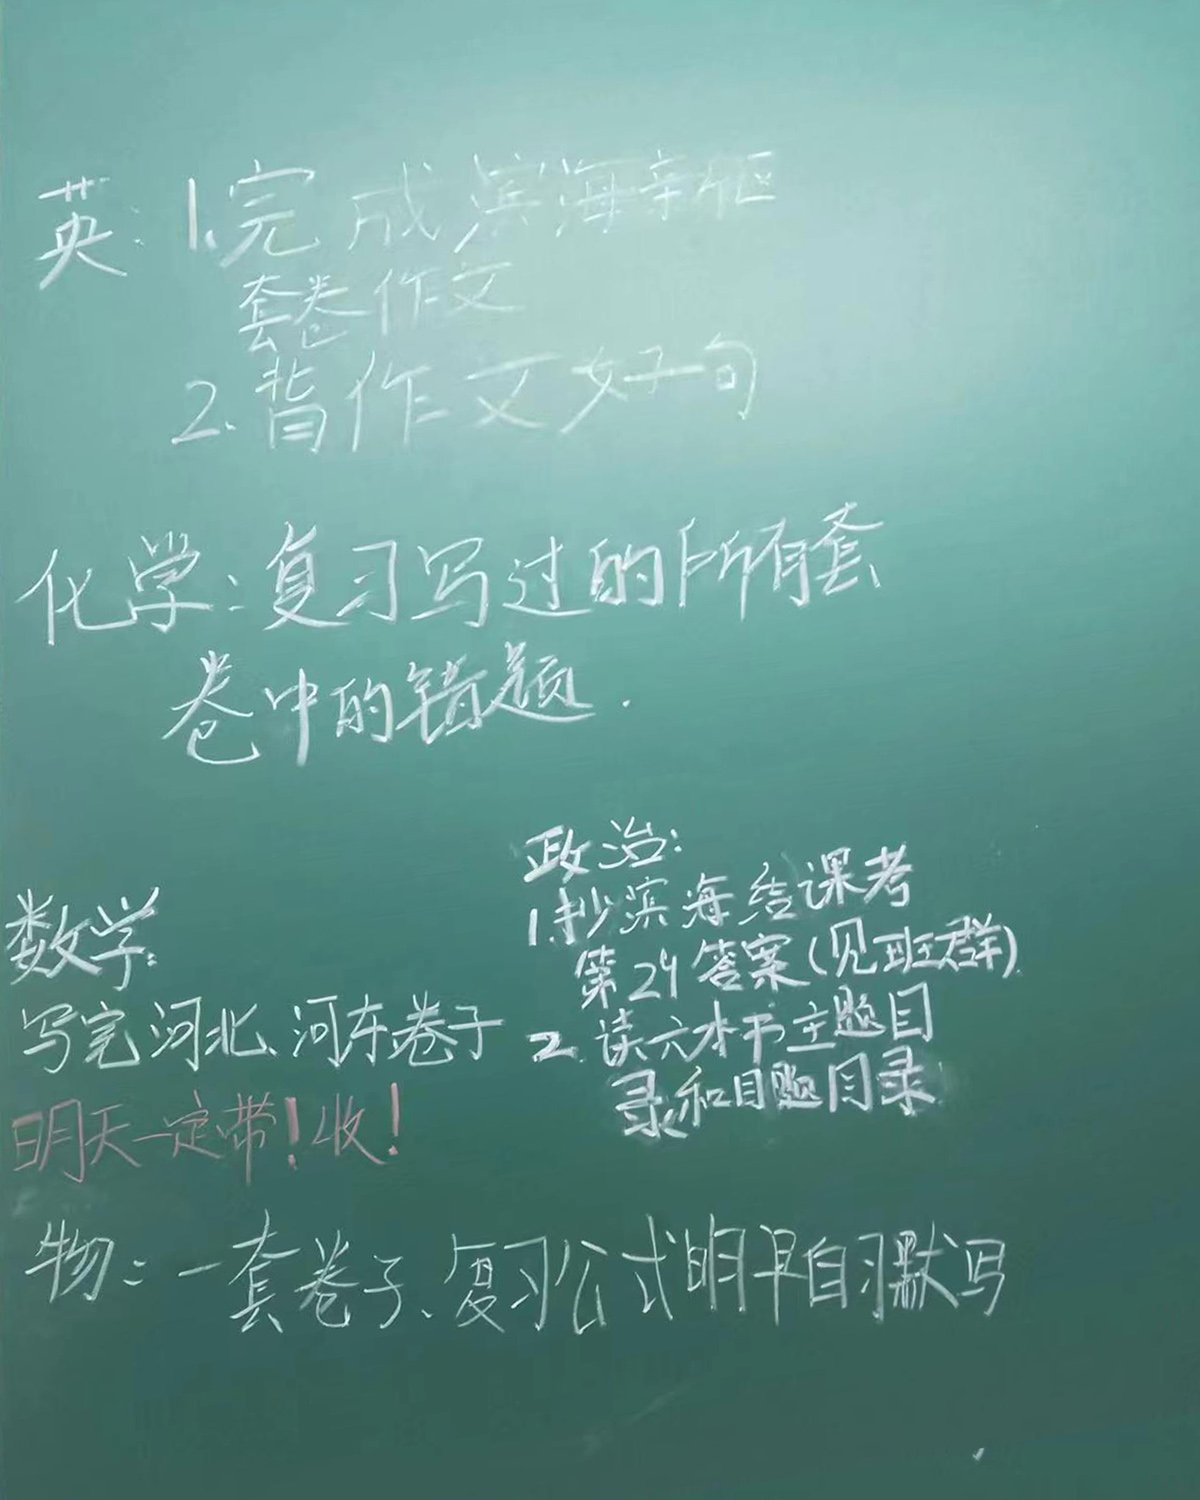 英：1.完成滨海新区
套卷作文
2.背作文好句
化学：复习写过的所有套
卷中的错题.
数学：
写完河北、河东卷子
明天一定带！收！
政治：
1.抄滨海结课考
第24答案（见班群）
2.读六本书主题目
录和目题目录
物：一套卷子、复习公式明早自习默写